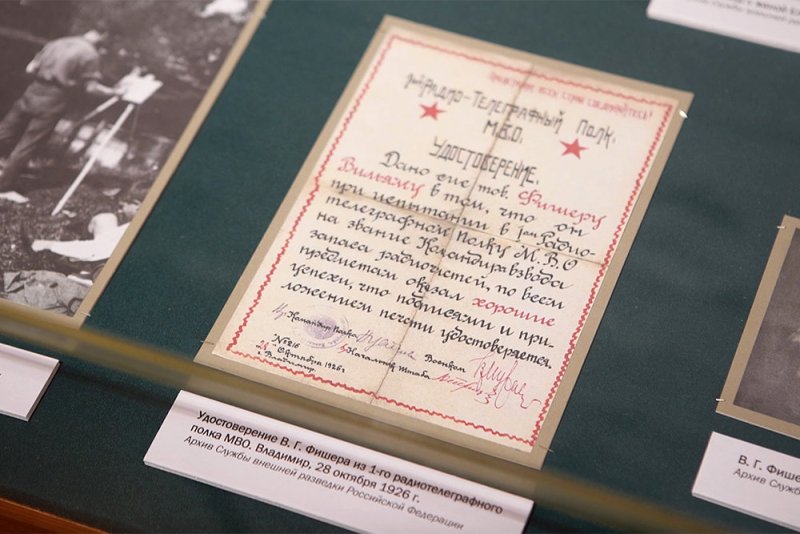 Пролетарии всех стран соединяйтесь!
1ый Радио-Телеграфный Полк.
М.В.О.
Удостоверение.
Дано сие тов. Фишеру
Вильяму в том, что он
при испытании в 1ом Радио-
телеграфном Полку М.В.О
на звание Командира взвода
запаса радиочастей, по всем
предметам оказал хорошие
успехи, что подписями и при-
ложением печати удостоверяется.
Командир полка
Военком
Начальник Штаба
№ 216
Октября 1926 г.
г. Владимир.
Удостоверение В. Г. Фишера из 1-го радиотелеграфного
полка МВО. Владимир, 28 октября 1926 г.
Архив Службы внешней разведки Российской Федерации
В. Г. Фише
Архив Служб
с женой